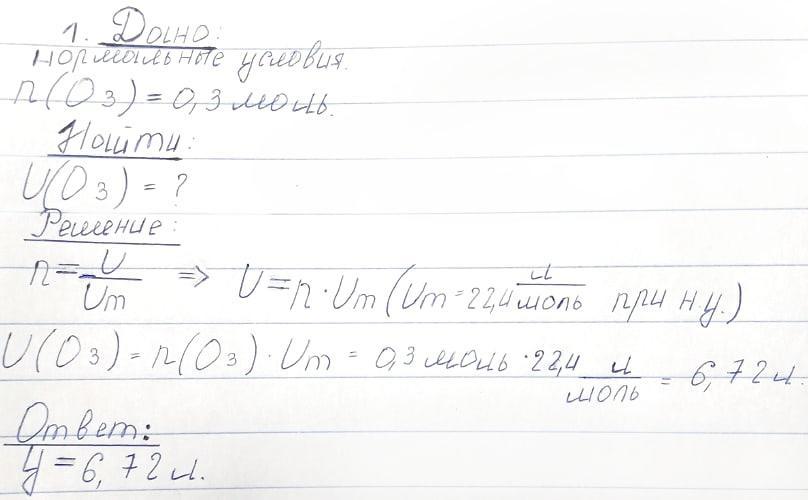 1. Дано:
нормальные условия.
n(O3) = 0,3 моль.
Найти:
V(O3) = ?
Решение:
n = V/Vm => V = n · Vm (Vm = 22,4 л/моль при н.у.)
V(O3) = n(O3) · Vm = 0,3 моль · 22,4 л/моль = 6,72 л.
Ответ:
У = 6,72 л.